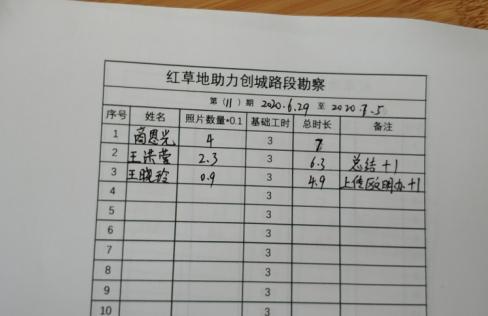 红草地助力创城路段勘察
第(11)期 2020.6.29 至 2020.7.5
序号 姓名 照片数量*0.1 基础工时 总时长 备注
1 商恩光 4 3 7
2 王洪莹 2.3 3 6.3 总结+1
3 王晓玲 0.9 3 4.9 上传区文明办+1
4 3
5 3
6 3
7 3
8 3
9 3
10 3